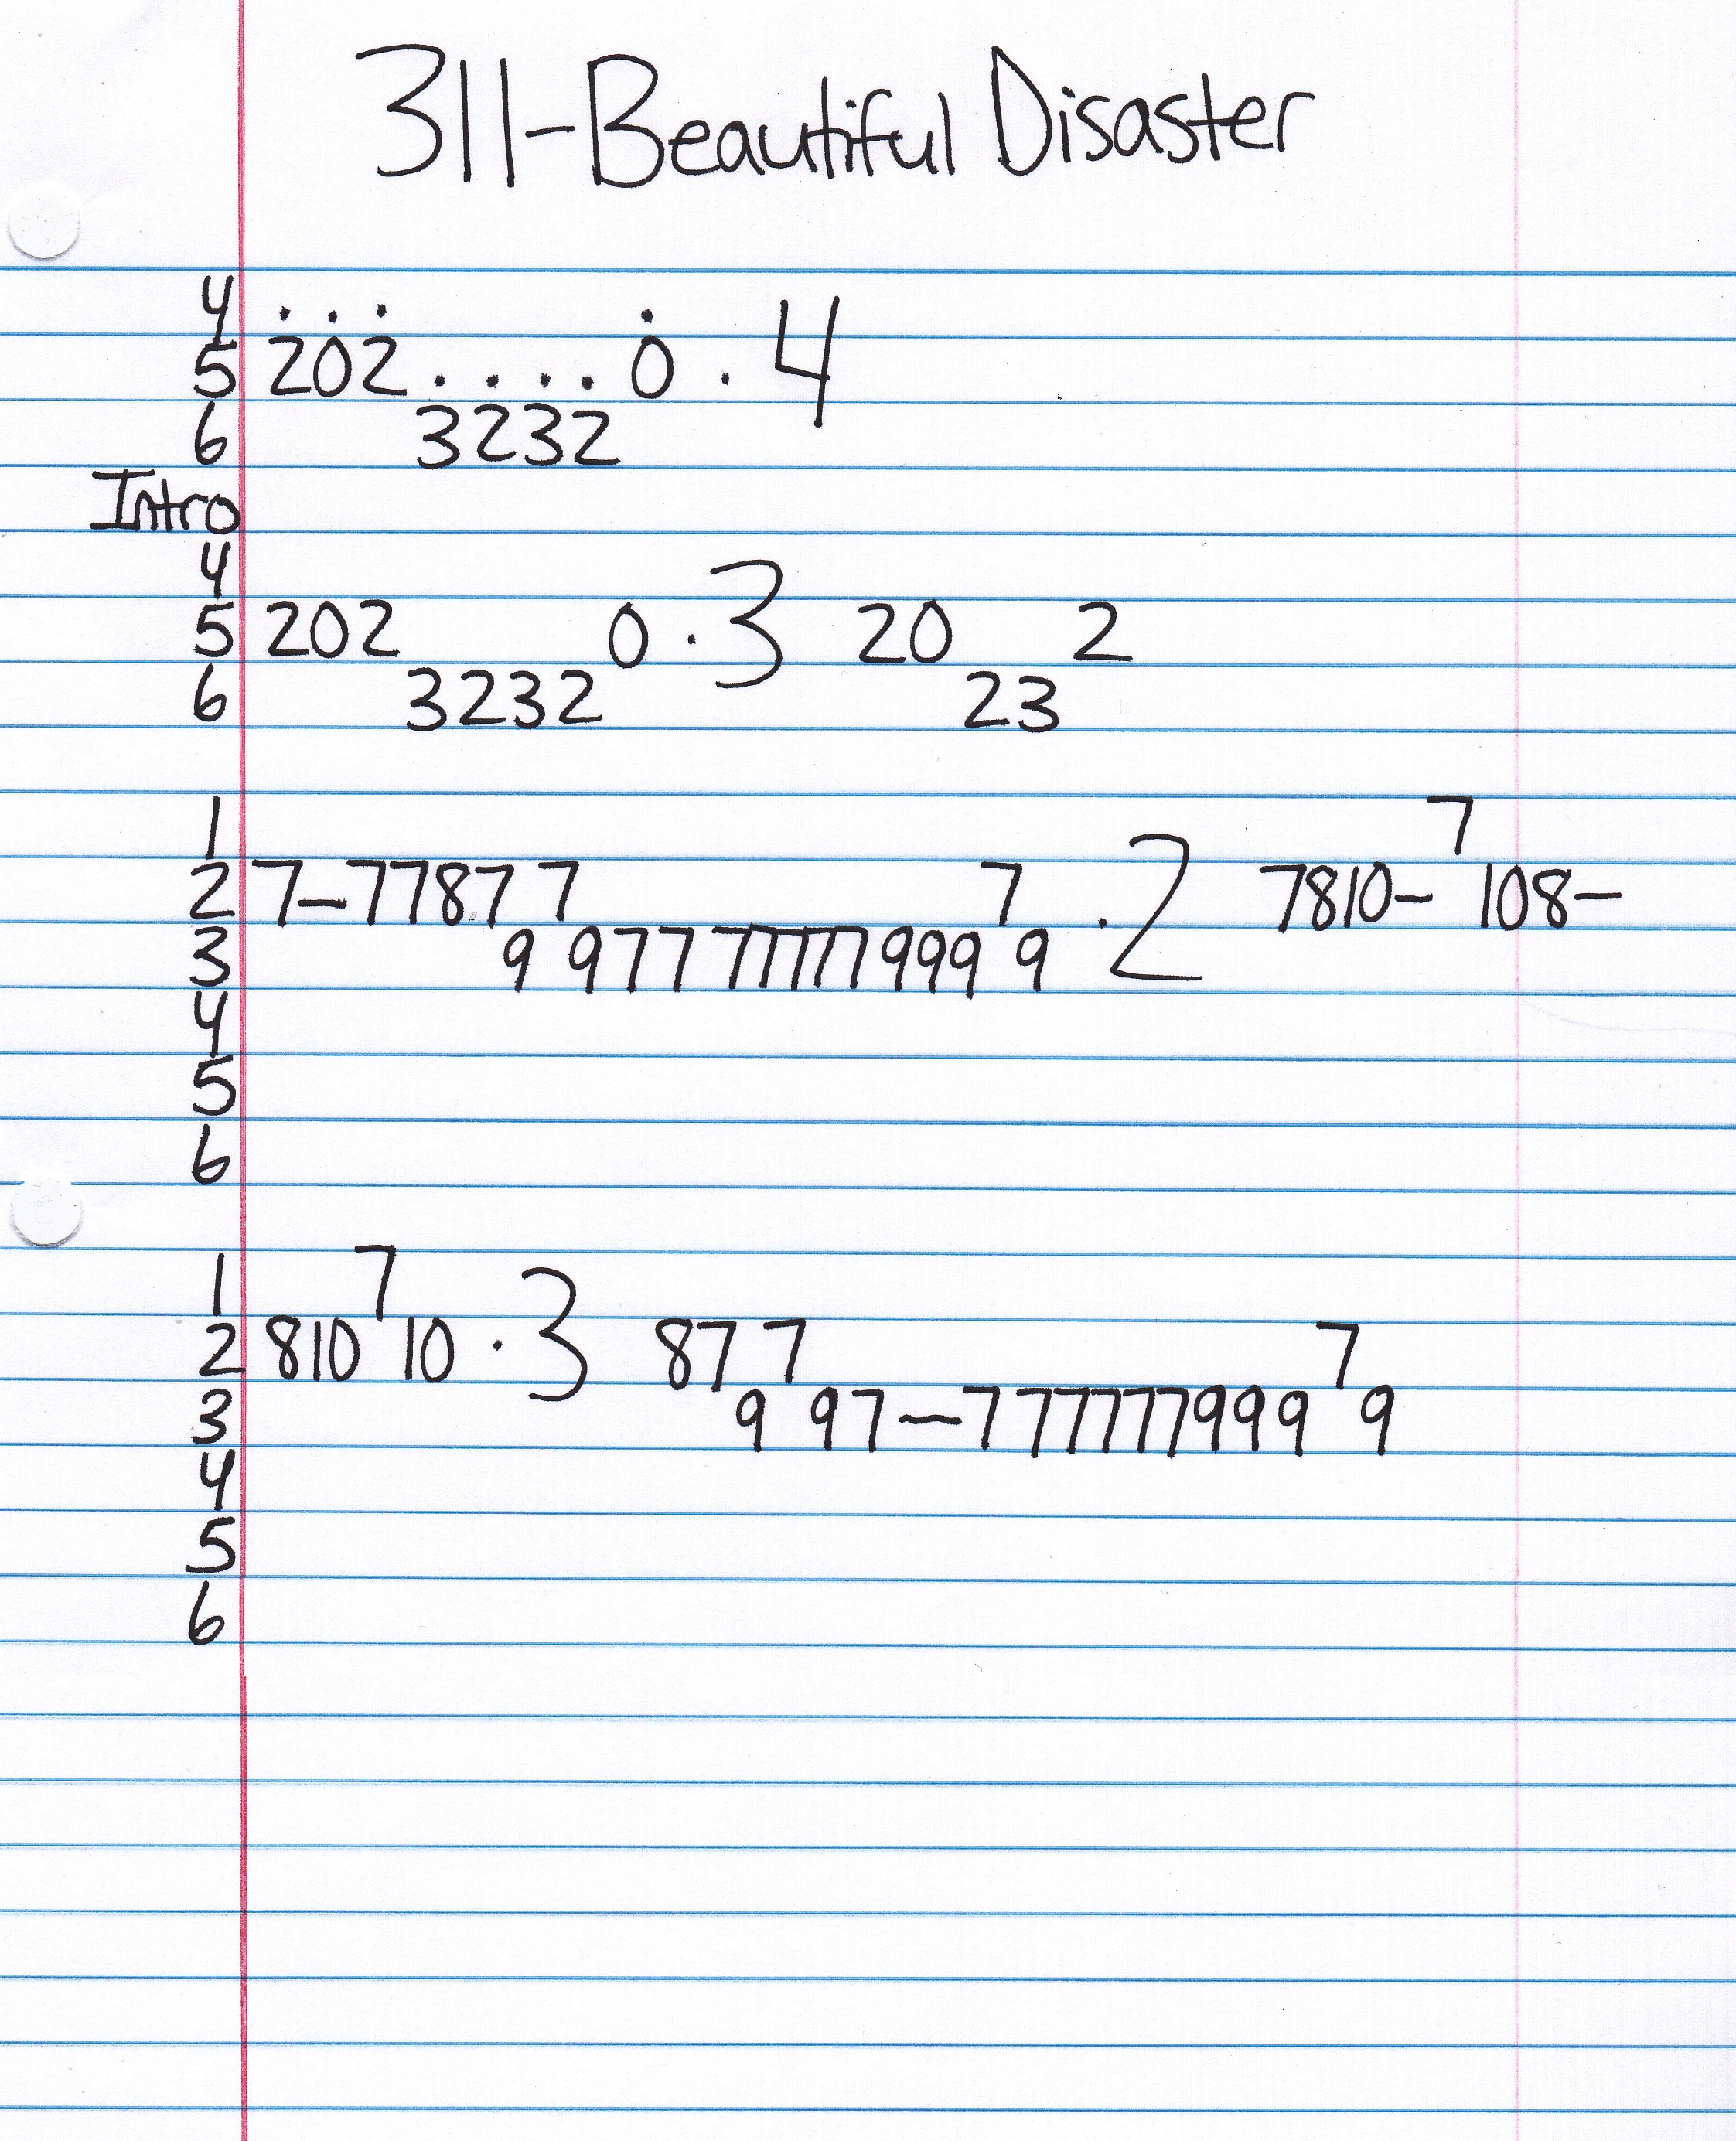 311-Beautiful Disaster
4 . . . .
5 202 . . . . 0 . 4
6 3232
Intro
4
5 202 0 . 3 20 2
6 3232 23
1 7
2 7-7787 7 7 . 2 7810- 108-
3 9 977 777777999 9
4
5
6
1 7
2 810 10 . 3 87 7 7
3 9 97-777777999 9
4
5
6